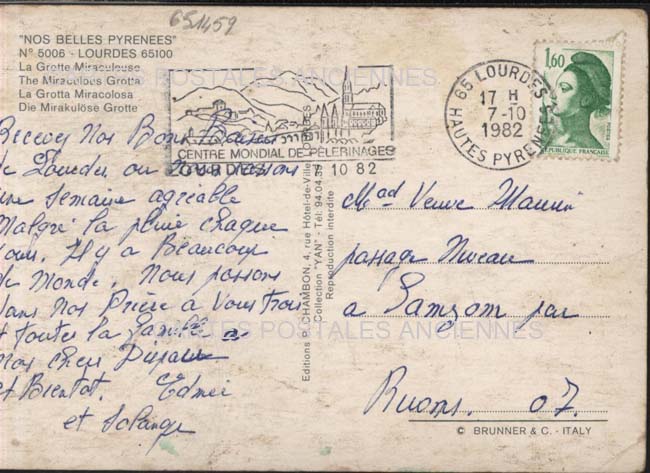 651459
"NOS BELLES PYRENEES"
N° 5006 - LOURDES 65100
La Grotte Miraculeuse
The Miraculous Grotta
La Grotta Miracolosa
Die Mirakulöse Grotte
CARTES POSTALES ANCIENNES
1,60
REPUBLIQUE FRANÇAISE
65 LOURDES
17 H
7-10
1982
HAUTES PYRENEES
CENTRE MONDIAL DE PÈLERINAGES
LOURDES
10 82
Recevez Nos Bons Baisers
de Lourdes ou Nous passons
une Semaine agreable
Malgré la pluie chaque
Jour. Il y a Beaucoup
de Monde. Nous passons
Dans nos Prière à Vous Trois
et toutes la famille
Nos chers
et Bientot. Edmée
et Solange
Editions P. CHAMBON, 4, rue Hôtel-de-Ville, LOURDES
Collection "YAN" - Tél. 94.04.39
Reproduction interdite
Mad Veuve Maurin
passage Niveau
a Sampzon par
Ruoms. 07.
CARTES POSTALES ANCIENNES
© BRUNNER & C. - ITALY